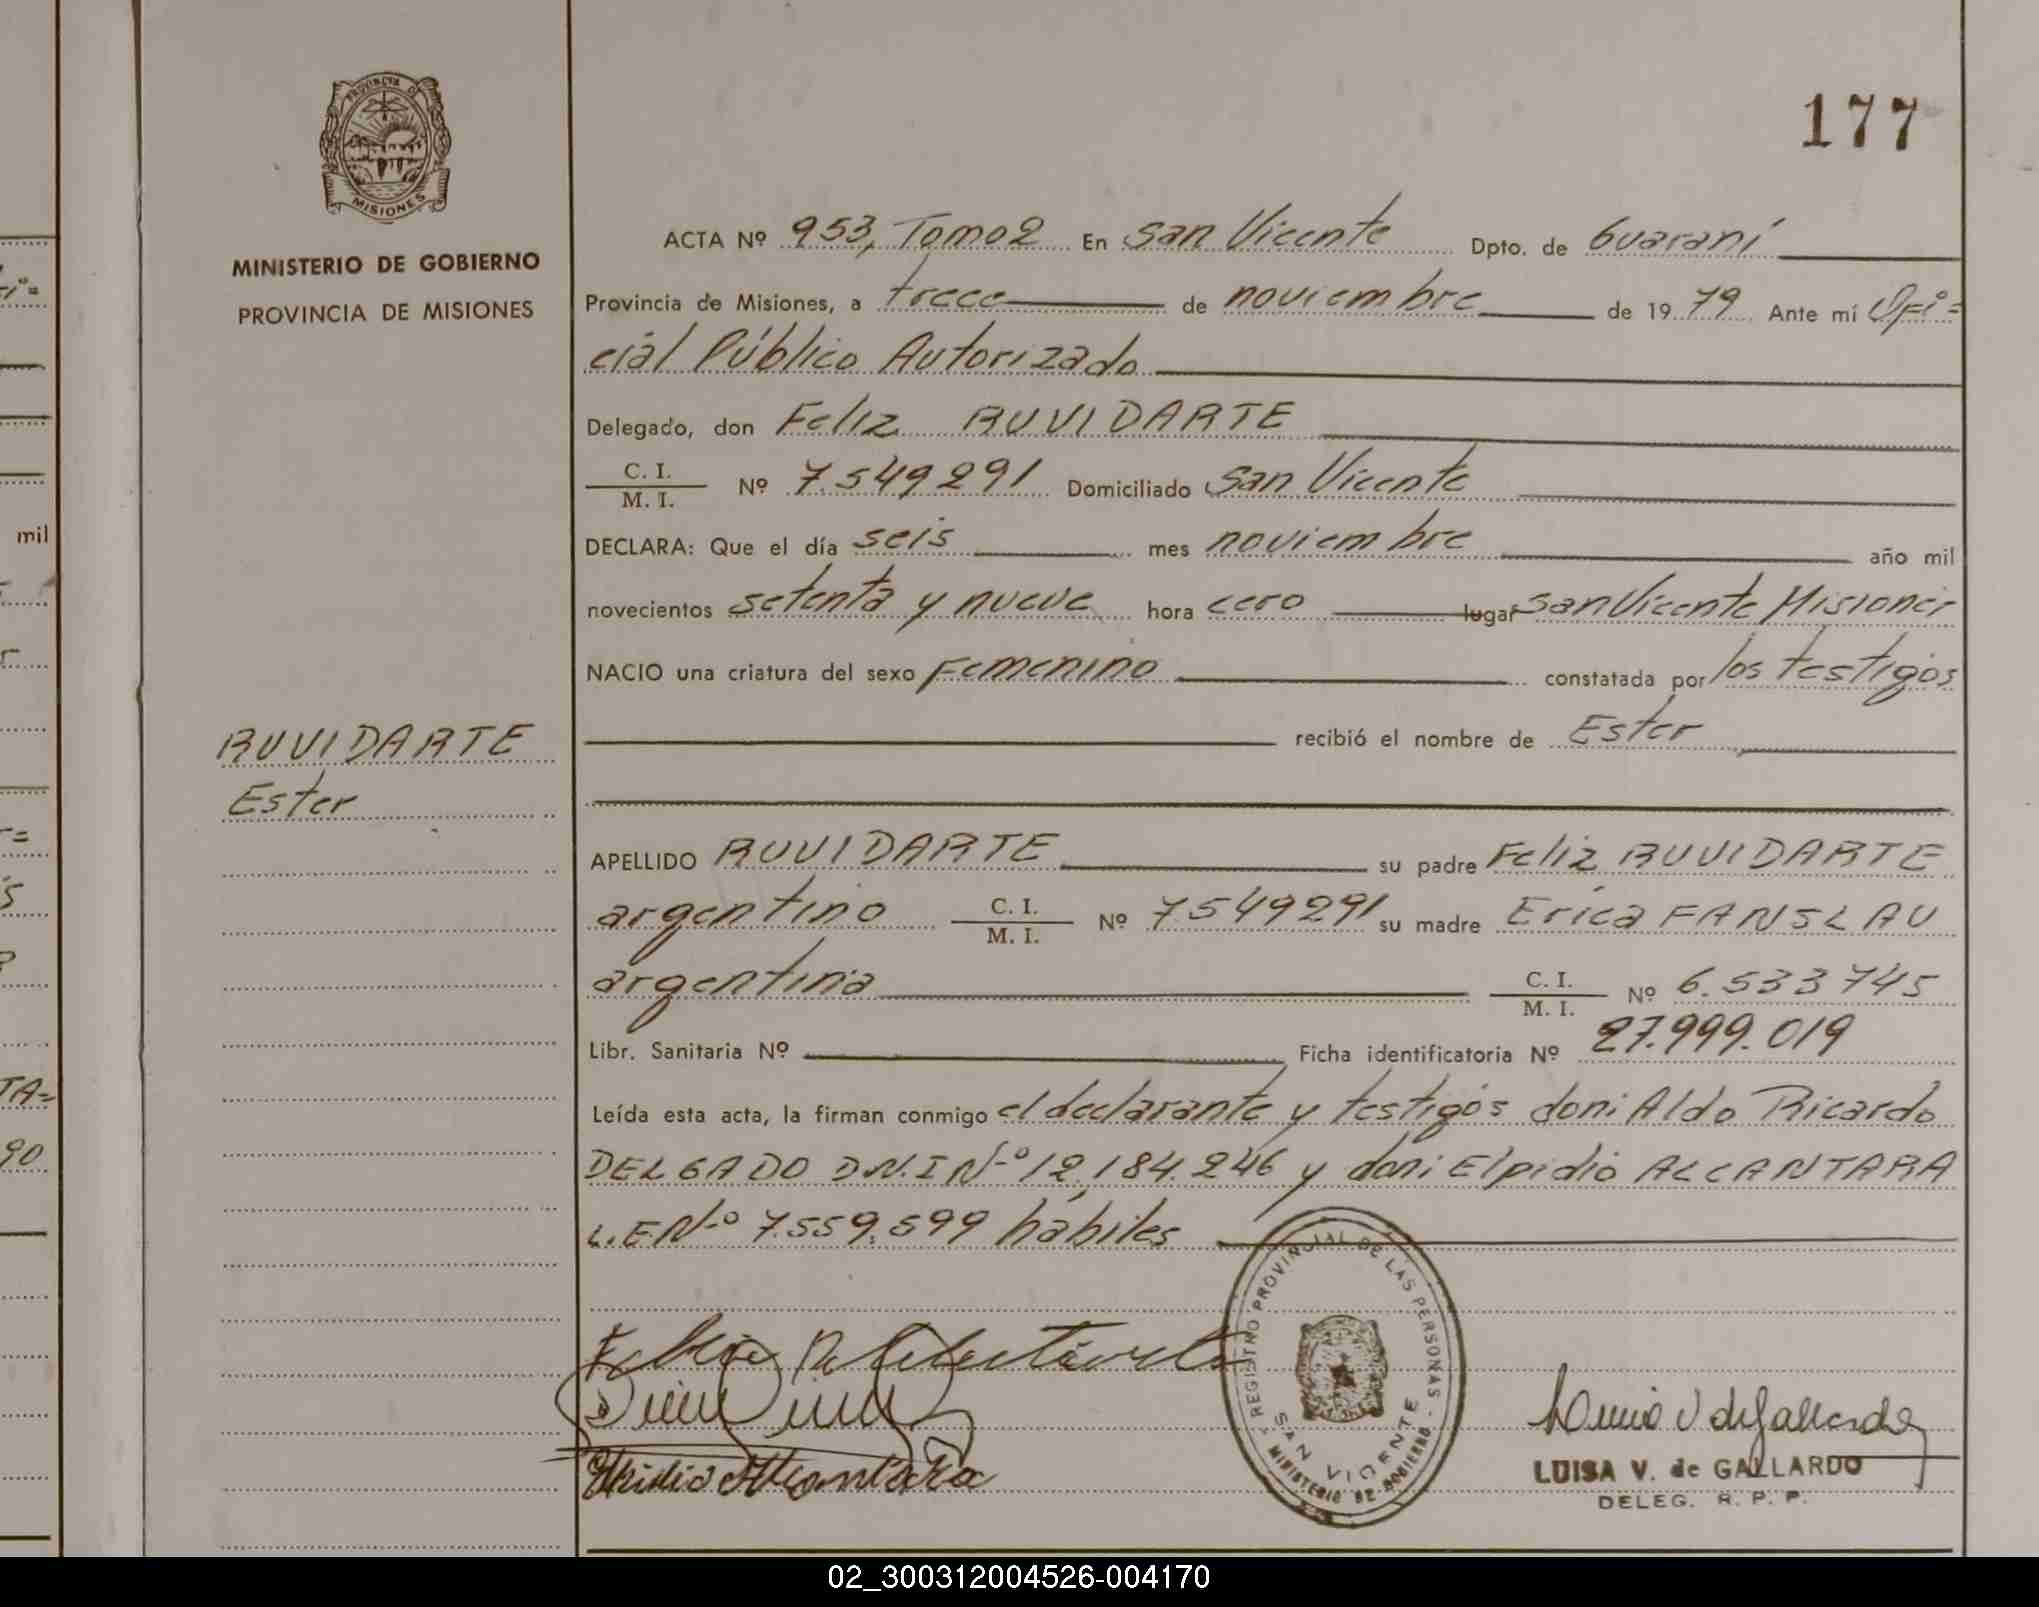 177
PROVINCIA D
MISIONES
MINISTERIO DE GOBIERNO
PROVINCIA DE MISIONES
ACTA Nº 953, Tomo 2 En San Vicente Dpto. de Guaraní
Provincia de Misiones, a trece de noviembre de 19 79 Ante mí Ofi=
cial Público Autorizado
Delegado, don Feliz RUVIDARTE
C. I.
M. I. Nº 7.549291 Domiciliado San Vicente
DECLARA: Que el día seis mes noviembre año mil
novecientos setenta y nueve hora cero lugar San Vicente Misiones
NACIO una criatura del sexo Femenino constatada por los testigos
recibió el nombre de Ester
RUVIDARTE
Ester
APELLIDO RUVIDARTE su padre Feliz RUVIDARTE
argentino C. I. M. I. Nº 7.549291 su madre Erica FANSLAU
argentina C. I. M. I. Nº 6.533745
Libr. Sanitaria Nº Ficha identificatoria Nº 27.999.019
Leída esta acta, la firman conmigo el declarante y testigos don: Aldo Ricardo
DELGADO D.N.I Nº 12.184.246 y don: Elpidio ALCANTARA
L.E Nº 7.559.599 hábiles
REGISTRO PROVINCIAL DE LAS PERSONAS
SAN VICENTE
MINISTERIO DE GOBIERNO
Elpidio Alcantara
LUISA V. de GALLARDO
DELEG. R. P. P.
mil
TA=
90
02_300312004526-004170